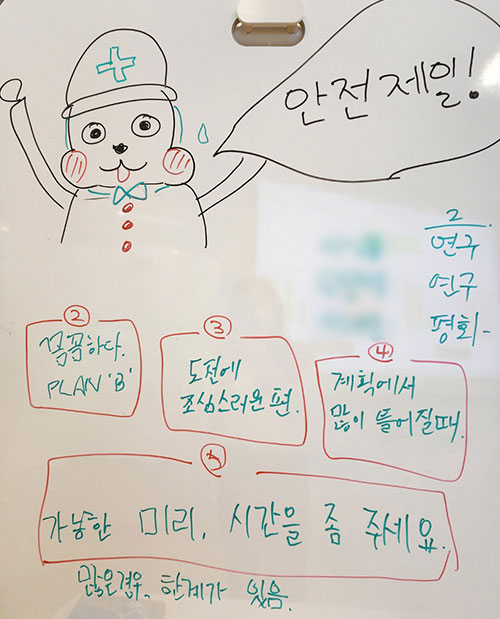 안전제일!
2
연구
연구
평화-
②
꼼꼼하다.
PLAN 'B'
③
도전에
조심스러운 편.
④
계획에서
많이 틀어질때.
⑤
가능한 미리, 시간을 좀 주세요.
많은경우, 한계가 있음.